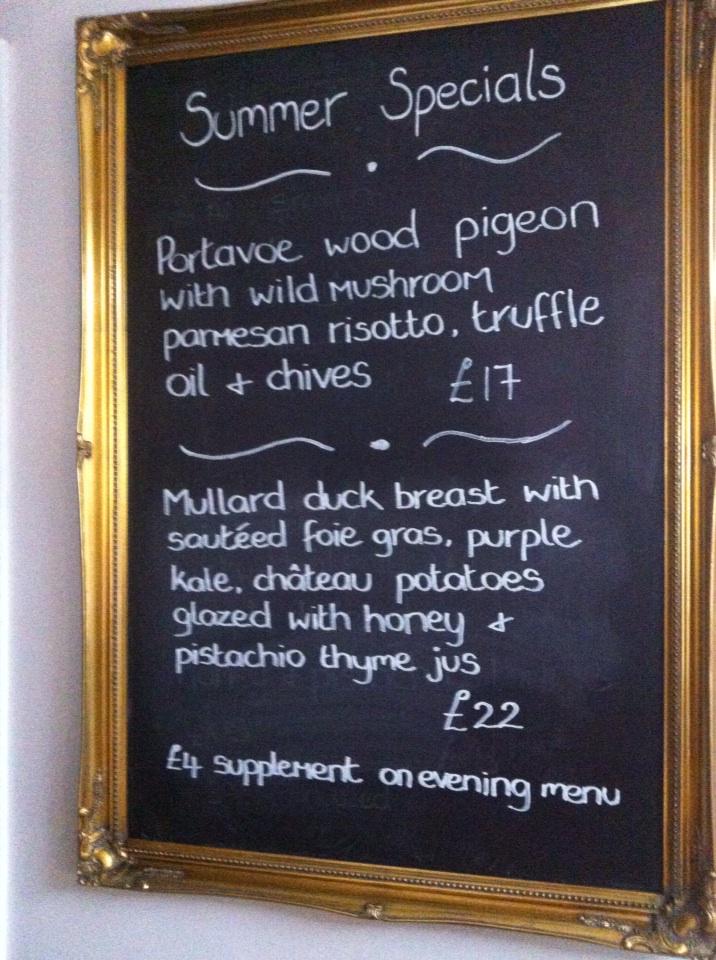 Summer Specials
Portavoe wood pigeon
with wild mushroom
parmesan risotto, truffle
oil + chives £17
Mullard duck breast with
sautéed foie gras, purple
kale, château potatoes
glazed with honey +
pistachio thyme jus
£22
£4 supplement on evening menu